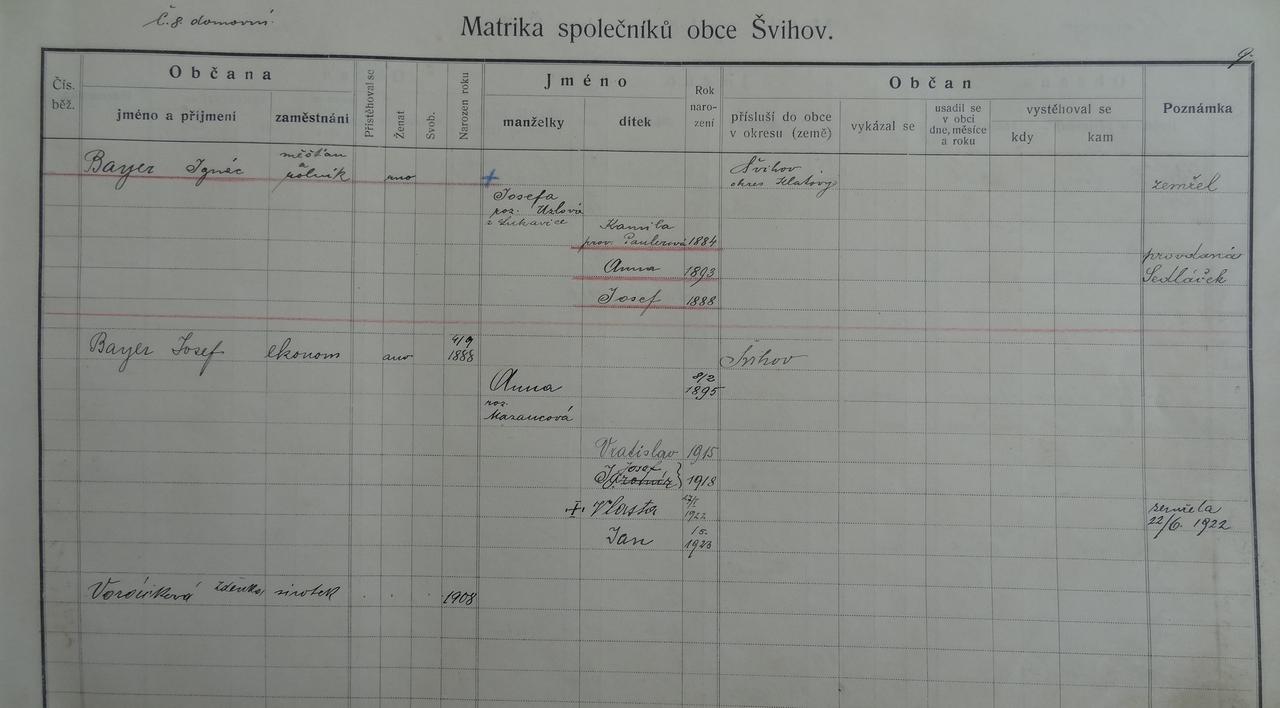 č. 8 domovní.
Matrika společníků obce Švihov.
9.
Čís. běž.
Občana
jméno a příjmení
zaměstnání
Přistěhoval se
Ženat
Svob.
Narozen roku
Jméno
manželky
dítek
Rok naro- zení
Občan
přísluší do obce v okresu (země)
vykázal se
usadil se v obci dne, měsíce a roku
vystěhoval se
kdy
kam
Poznámka
Bayer Ignác
měšťan a rolník
ano
Švihov
okres Klatovy
zemřel
Josefa
roz. Uzlová
z Lukavice
Kamila
prov. Paulerová 1884
Anna 1893
provdaná
Sedláček
Josef 1888
Bayer Josef ekonom ano 4/9 1888 Švihov
Anna 8/2 1895
roz.
Mazancová
Vratislav 1915
Josef 1918
Vlasta 1922
zemřela
22/6. 1922
Jan 1923
Zdeňka sirotek 1908